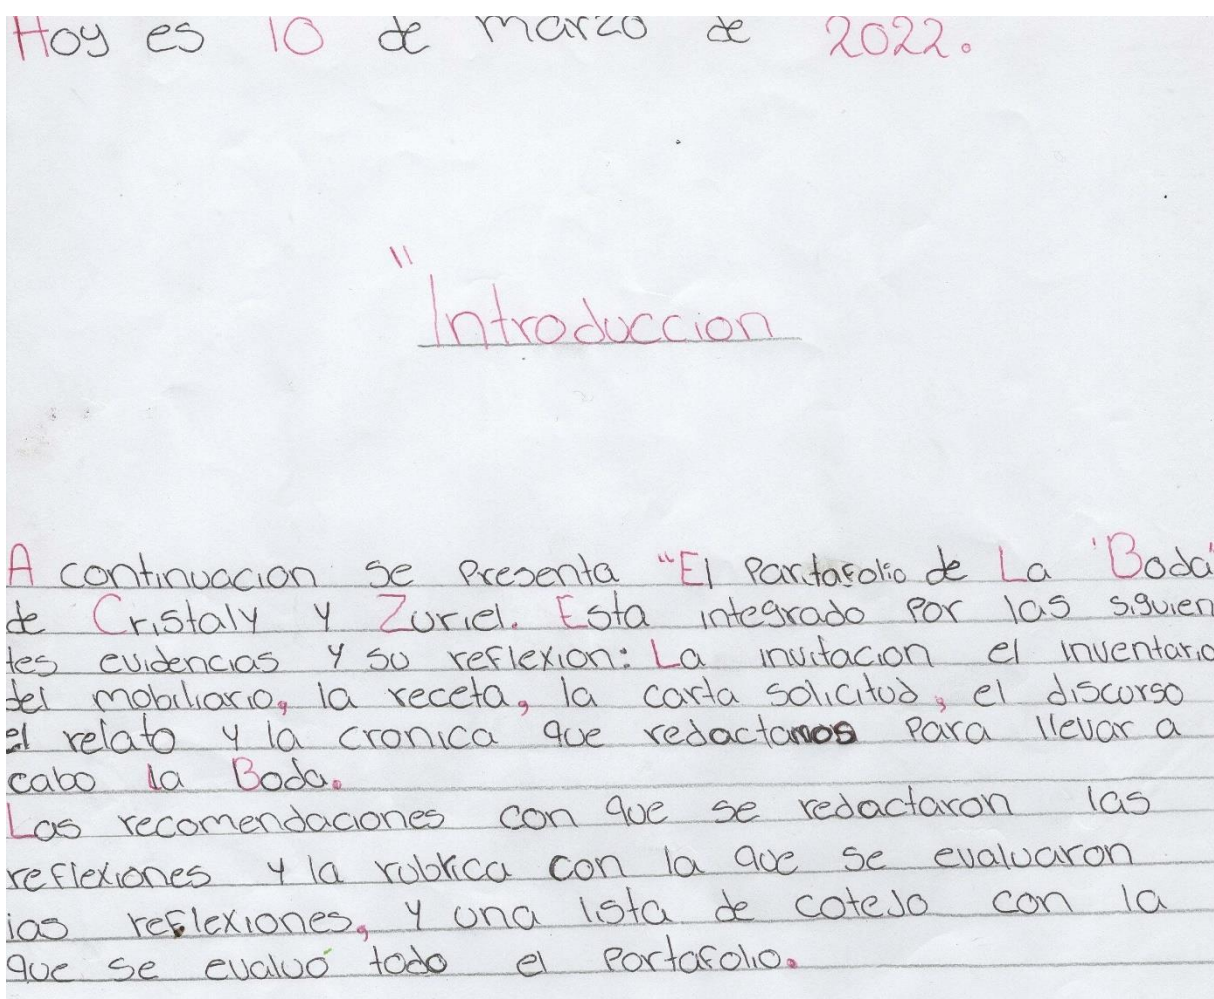 Hoy es 10 de marzo de 2022.
"Introduccion
A continuacion se Presenta "El Partafolio de La "Boda"
de Cristaly y Zuriel. Esta integrado Por las siguien
tes evidencias y su reflexion: La invitacion el inventario
del mobiliario, la receta, la carta solicitud, el discurso
el relato y la cronica que redactamos Para llevar a
cabo la Boda.
Las recomendaciones con que se redactaron las
reflexiones y la rubrica con la que se evaluaron
las reflexiones, y una lista de cotejo con la
que se evaluó todo el Portafolio.